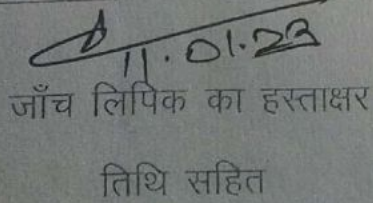 11.01.23
जाँच लिपिक का हस्ताक्षर
तिथि सहित